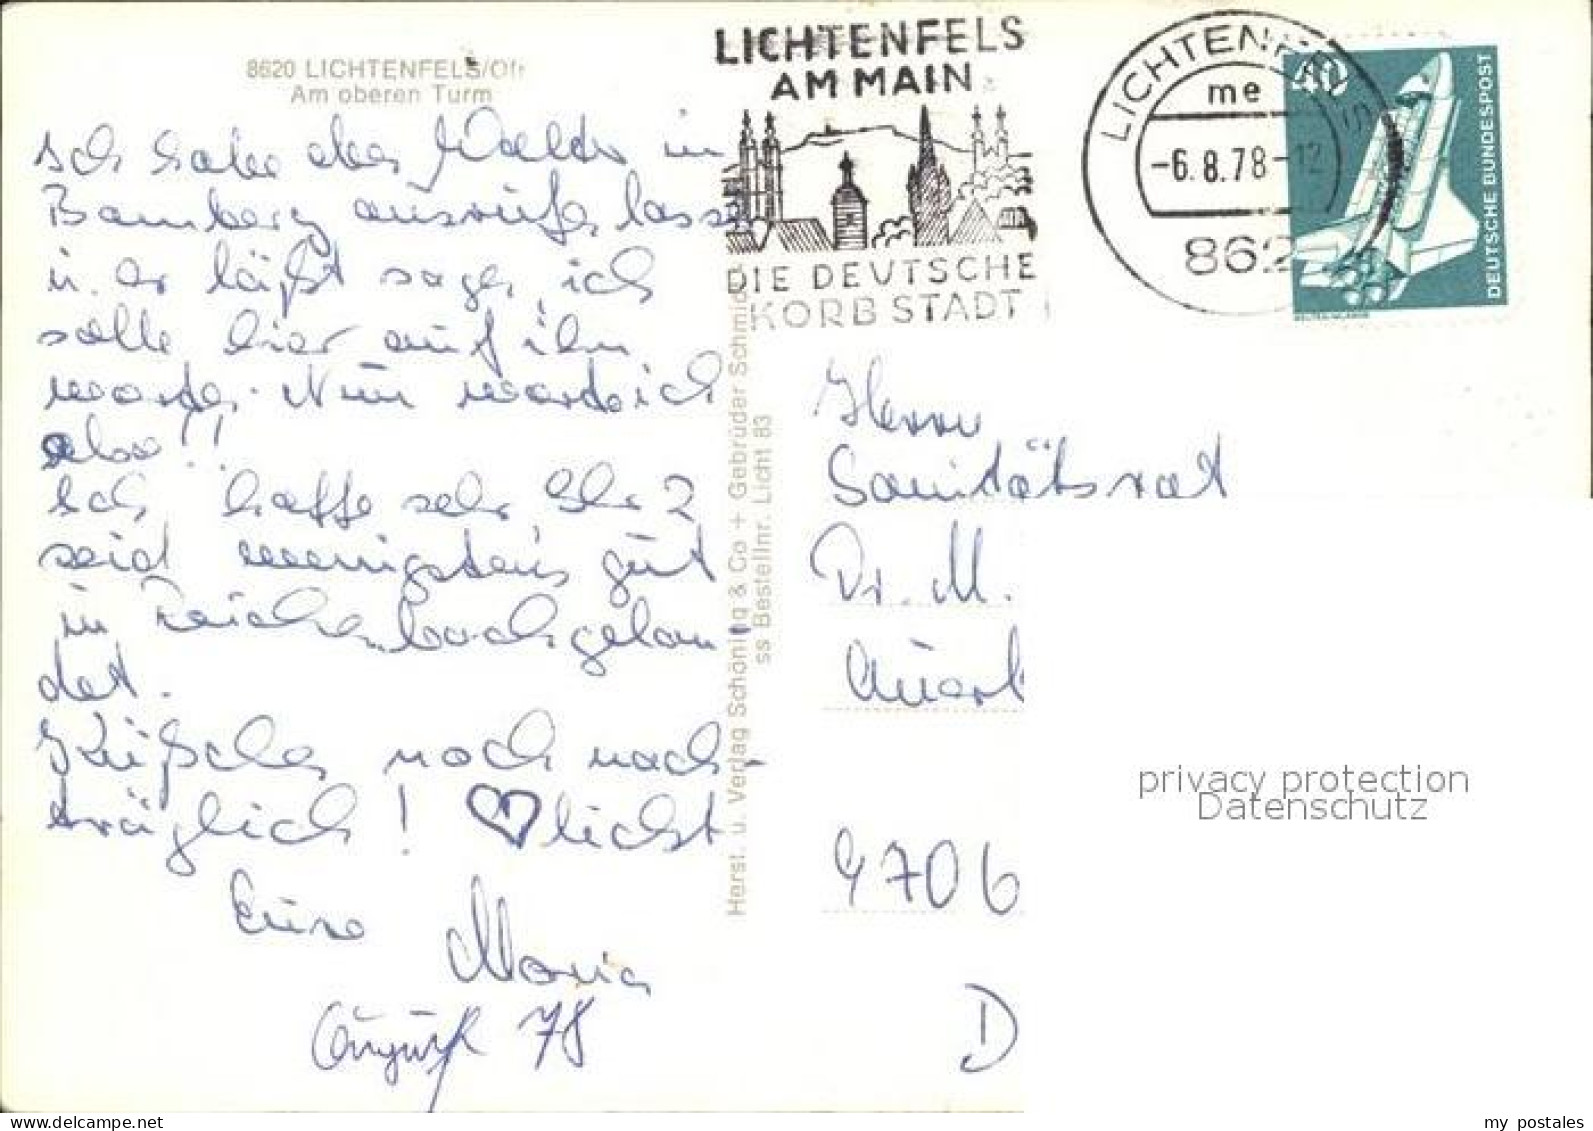 8620 LICHTENFELS/Ofr
Am oberen Turm
Ich habe den Waldi in
Bamberg ausrufen lasse
u. er läßt sagen, ich
solle hier auf ihn
warten. Nun warte ich
also!!
Ich hoffe sehr, Ihr 2
seid wenigstens gut
in Reichenbach gelan
det.
Küßchen noch nach-
träglich! ♡lichst
Eure
Maria
August 78
Herst. u. Verlag Schöning & Co + Gebrüder Schmidt
ss Bestellnr. Licht 83
LICHTENFELS
AM MAIN
DIE DEUTSCHE
KORBSTADT
LICHTENFELS
me
-6.8.78-12
862
40
DEUTSCHE BUNDESPOST
Herrn
Sanitätsrat
Dr. M.
Auerb
8706
D
privacy protection
Datenschutz
my postales
www.delcampe.net